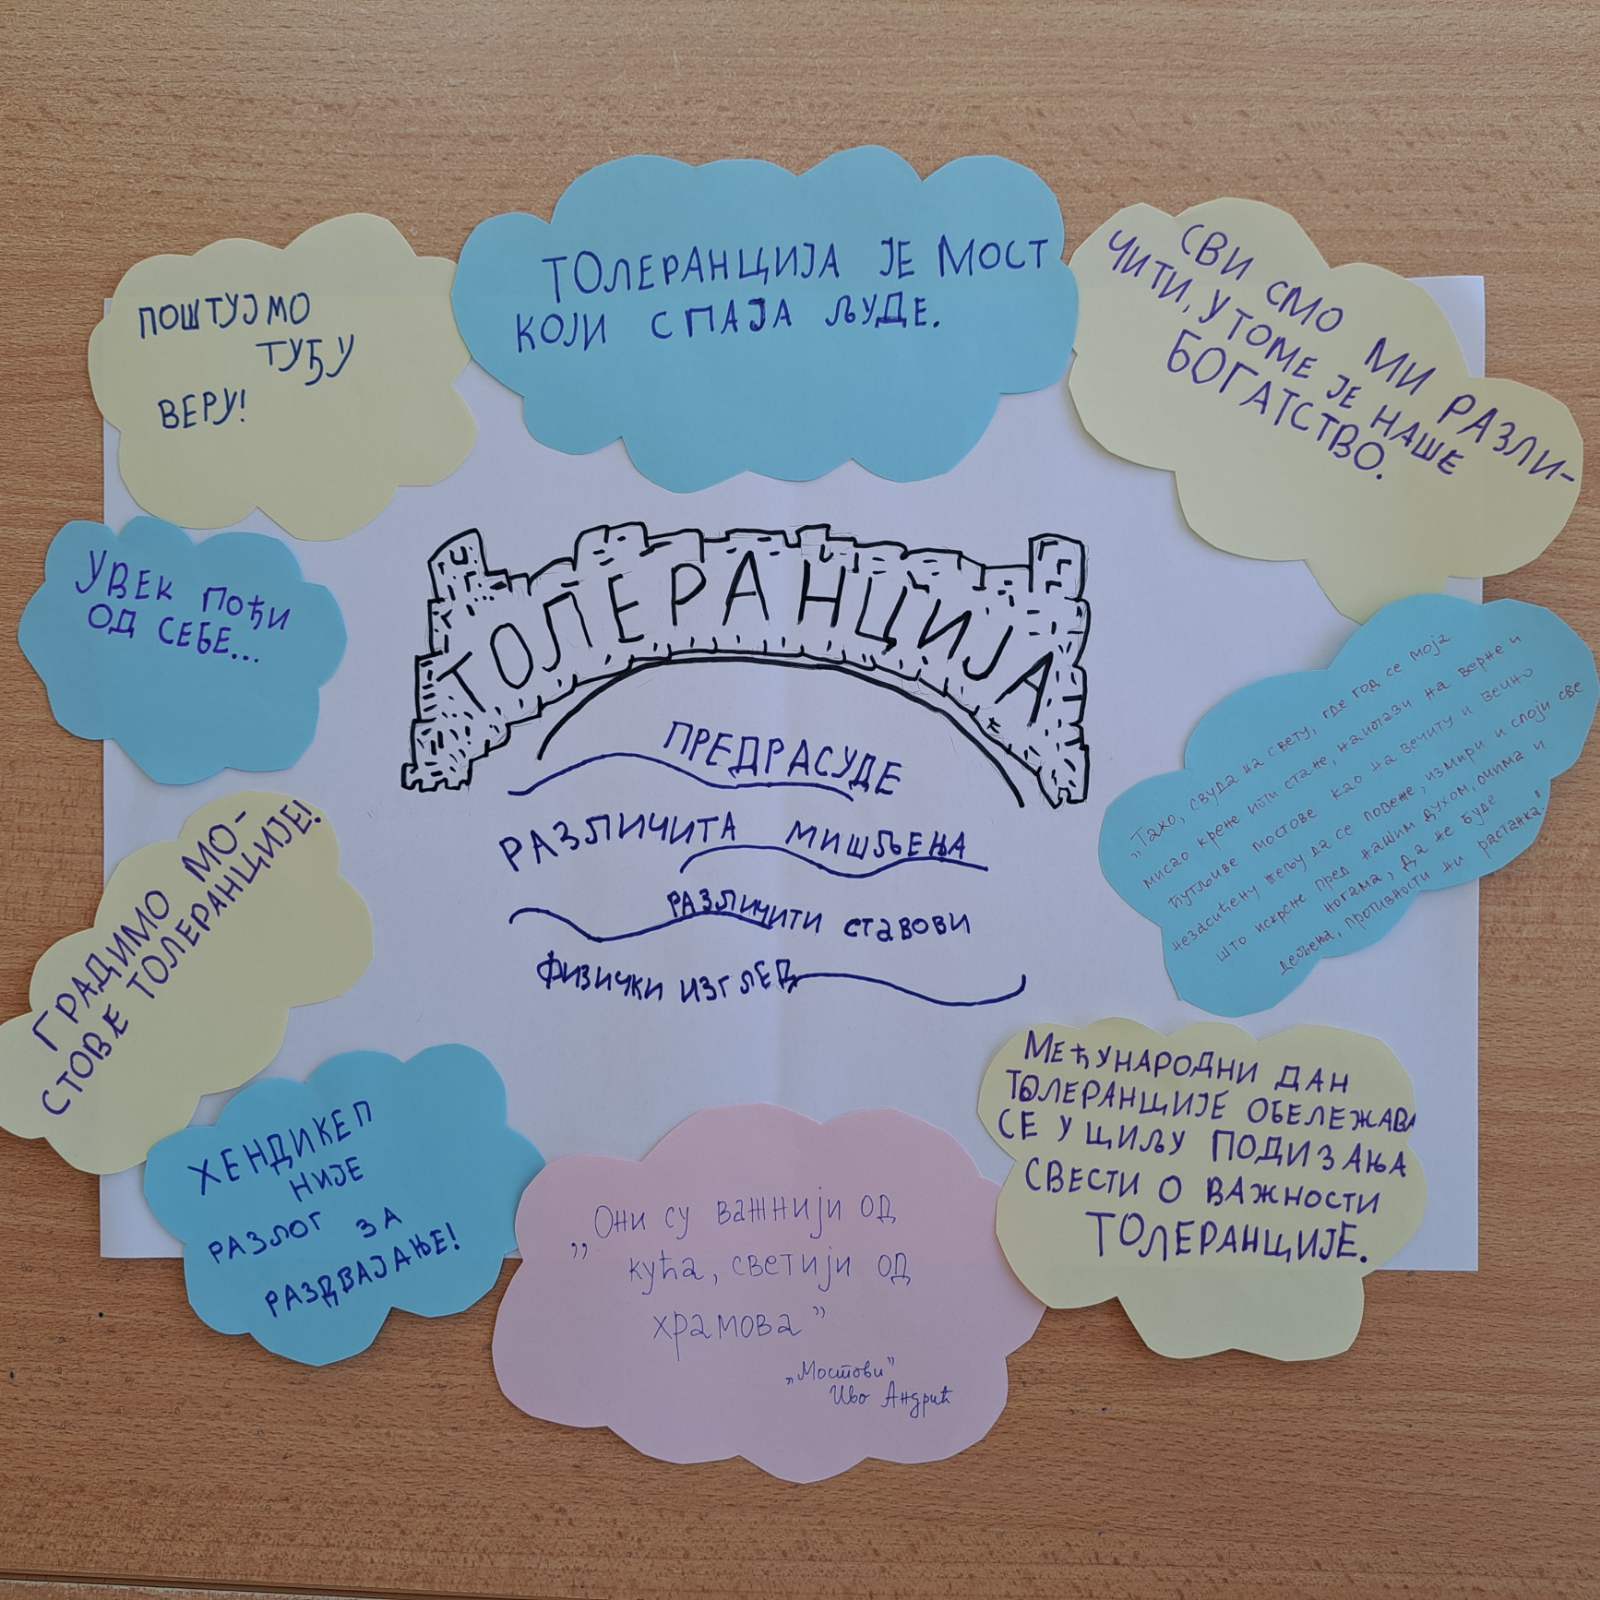 ПОШТУЈМО
ТУЂУ
ВЕРУ!
ТОЛЕРАНЦИЈА ЈЕ МОСТ
КОЈИ СПАЈА ЉУДЕ.
СВИ СМО МИ РАЗЛИ-
ЧИТИ, У ТОМЕ ЈЕ НАШЕ
БОГАТСТВО.
УВЕК ПОЂИ
ОД СЕБЕ...
ТОЛЕРАНЦИЈА
ПРЕДРАСУДЕ
РАЗЛИЧИТА МИШЉЕЊА
РАЗЛИЧИТИ СТАВОВИ
ФИЗИЧКИ ИЗГЛЕД
„Тако, свуда на свету, где год се моја
мисао крене или стане, наилази на верне и
ћутљиве мостове као на вечиту и вечно
незасићену жељу да се повеже, измири и споји све
што искрсне пред нашим духом, очима и
ногама, да не буде
дељења, противности ни растанка"
ГРАДИМО МО-
СТОВЕ ТОЛЕРАНЦИЈЕ!
ХЕНДИКЕП
НИЈЕ
РАЗЛОГ ЗА
РАЗДВАЈАЊЕ!
„Они су важнији од
кућа, светији од
храмова”
„Мостови"
Иво Андрић
МЕЂУНАРОДНИ ДАН
ТОЛЕРАНЦИЈЕ ОБЕЛЕЖАВА
СЕ У ЦИЉУ ПОДИЗАЊА
СВЕСТИ О ВАЖНОСТИ
ТОЛЕРАНЦИЈЕ.